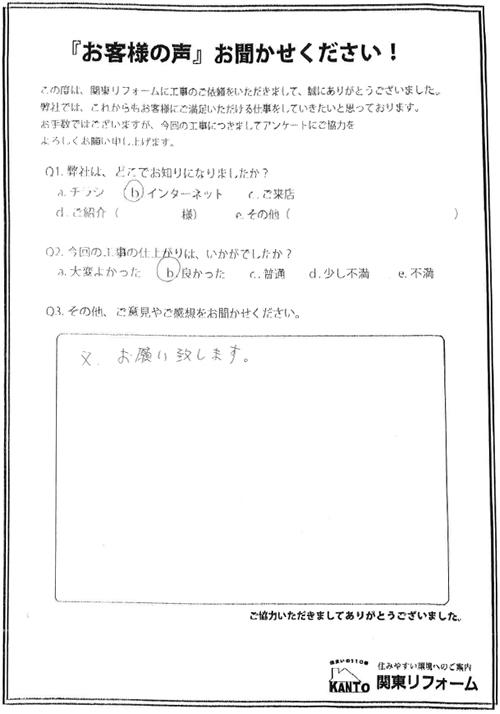 『お客様の声』お聞かせください！
この度は、関東リフォームに工事のご依頼をいただきまして、誠にありがとうございました。
弊社では、これからもお客様にご満足いただける仕事をしていきたいと思っております。
お手数ではございますが、今回の工事につきましてアンケートにご協力を
よろしくお願い申し上げます。
Q1. 弊社は、どこでお知りになりましたか？
a. チラシ b. インターネット c. ご来店
d. ご紹介（ 様） e. その他（ ）
Q2. 今回の工事の仕上がりは、いかがでしたか？
a. 大変よかった b. 良かった c. 普通 d. 少し不満 e. 不満
Q3. その他、ご意見やご感想をお聞かせください。
又、お願い致します。
ご協力いただきましてありがとうございました。
住まいの110番
KANTO
住みやすい環境へのご案内
関東リフォーム